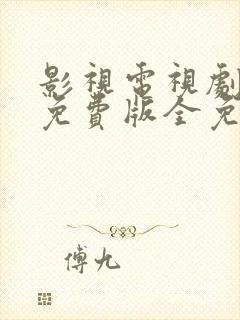 影視電視劇
免費版全免
傅九